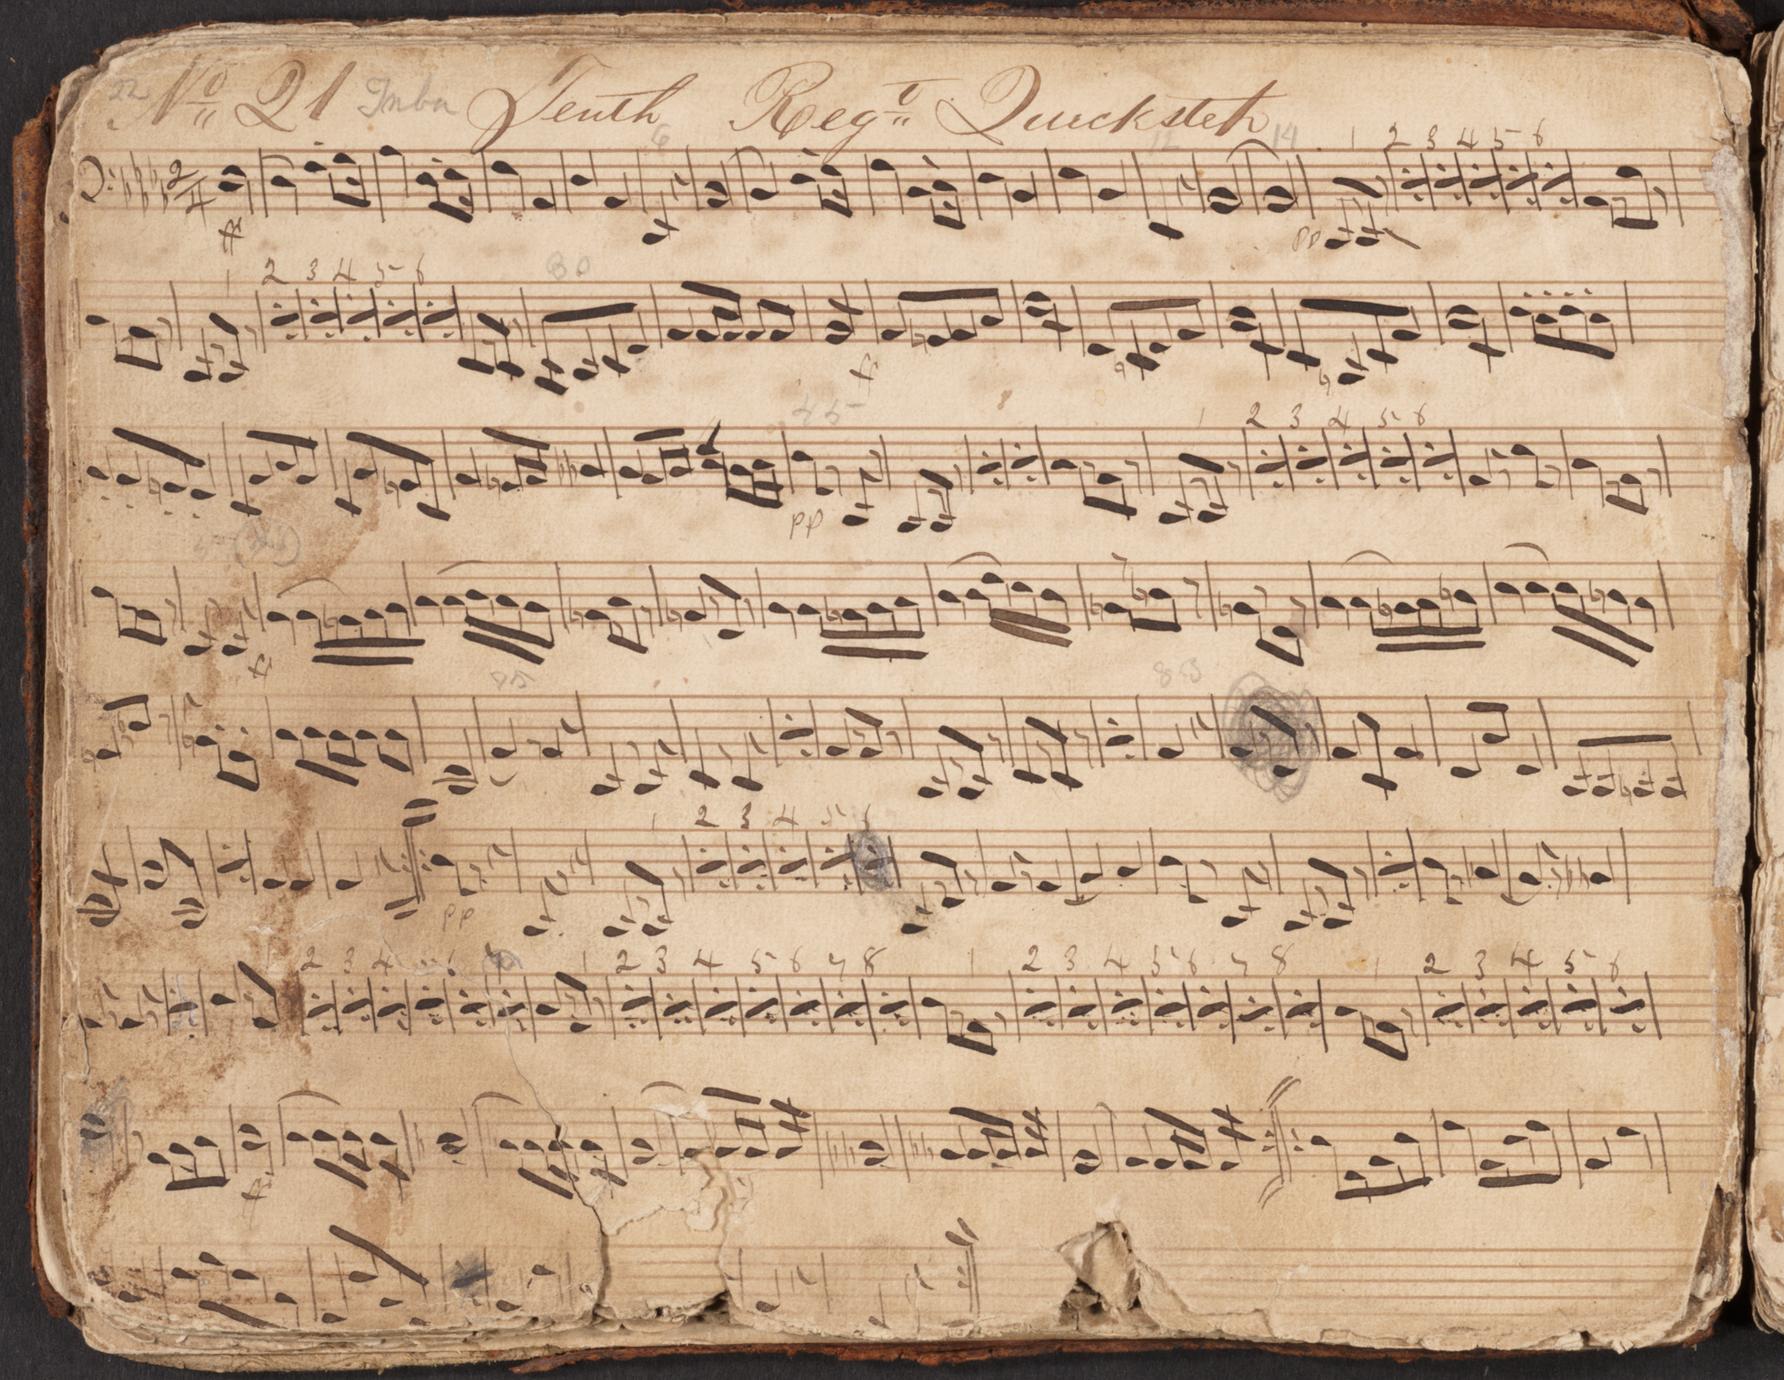 22 No 21 Tenth Regt Quickstep
6 12 14 1 2 3 4 5 6
ff pp
1 2 3 4 5 6 30
ff
45 1 2 3 4 5 6
pp
ff
75 83
1 2 3 4 5 6
pp
2 3 4 6 1 2 3 4 5 6 7 8 1 2 3 4 5 6 7 8 1 2 3 4 5 6
ff